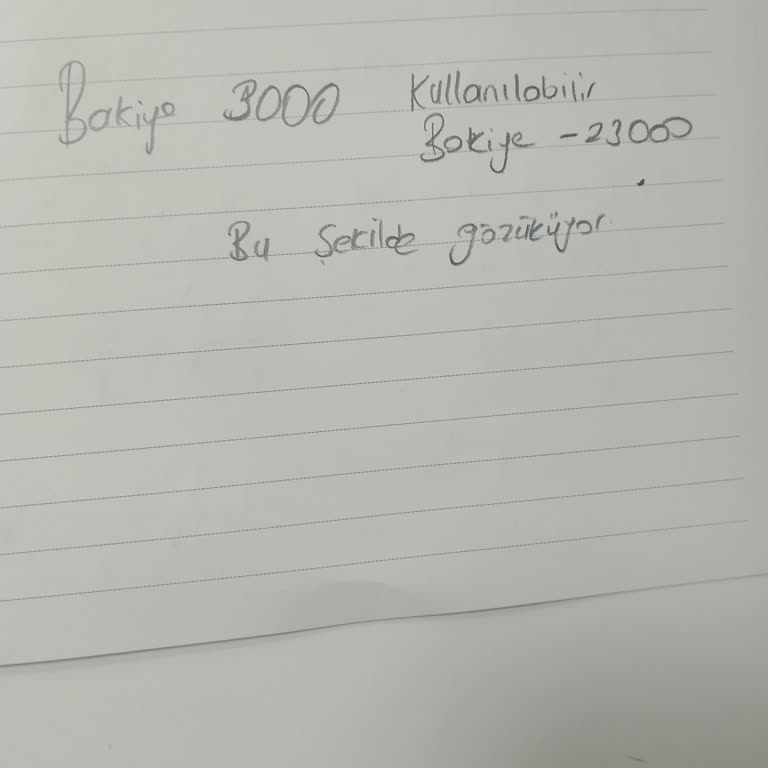 Bakiye 3000 Kullanılabilir
Bakiye -23000
Bu şekilde gözüküyor.